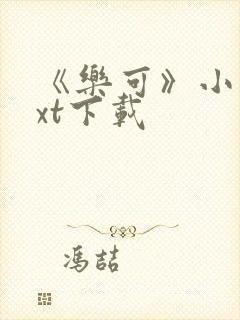 《樂可》小
xt下載
馮喆